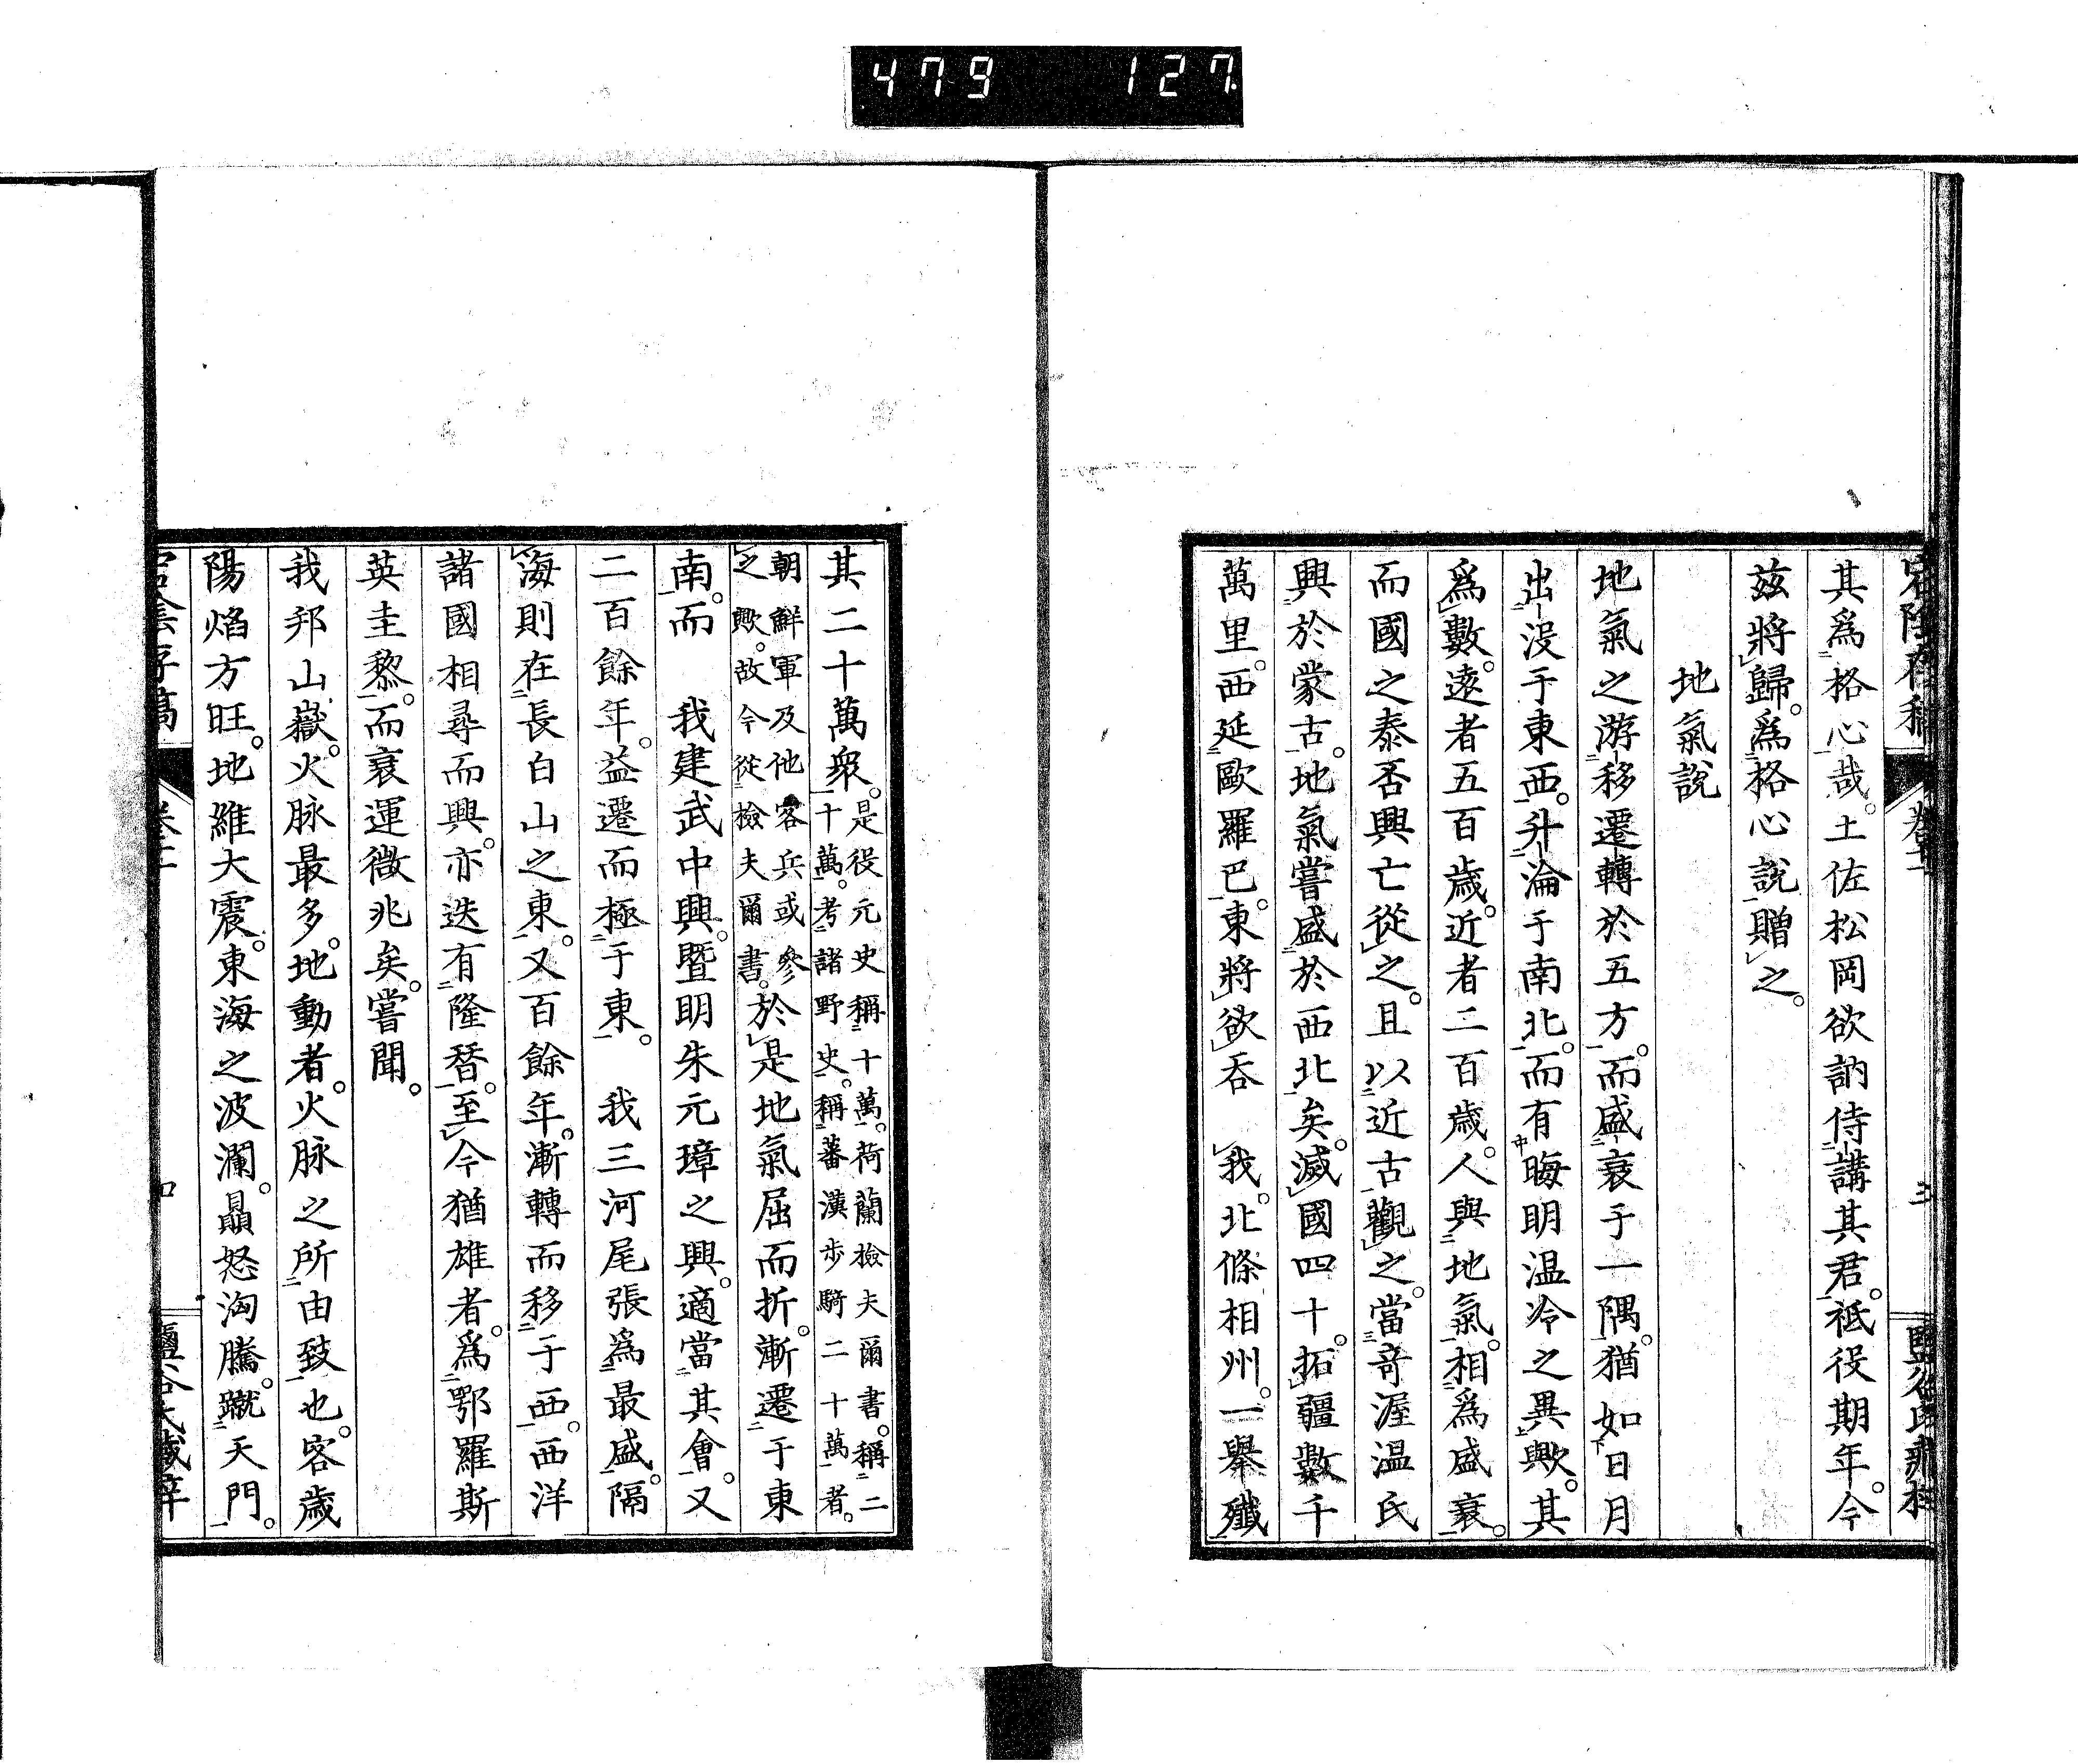 479 127
其爲格心哉。土佐松岡欲訥侍講其君。祗役期年。今
茲將歸。爲格心說贈之。
地氣說
地氣之游移遷轉於五方。而盛衰于一隅。猶如日月
出沒于東西。升淪于南北。而有晦明温冷之異歟。其
爲數。遠者五百歲。近者二百歲。人與地氣。相爲盛衰。
而國之泰否興亡從之。且以近古觀之。當竒渥温氏
興於蒙古。地氣嘗盛於西北矣。滅國四十。拓疆數千
萬里。西延歐羅巴。東將欲吞 我。北條相州。一舉殲
其二十萬衆。是役元史稱十萬。荷蘭檢夫爾書。稱二
十萬。考諸野史。稱蕃漢步騎二十萬者。
朝鮮軍及他客兵或參
之歟。故今從檢夫爾書。於是地氣屈而折。漸遷于東
南。而 我建武中興。暨明朱元璋之興。適當其會。又
二百餘年。益遷而極于東。 我三河尾張爲最盛。隔
海則在長白山之東。又百餘年。漸轉而移于西。西洋
諸國相尋而興。亦迭有隆替。至今猶雄者。爲鄂羅斯
英圭黎。而衰運微兆矣。嘗聞。
我邦山嶽。火脉最多。地動者。火脉之所由致也。客歲
陽焰方旺。地維大震。東海之波瀾。贔怒洶騰。蹴天門。